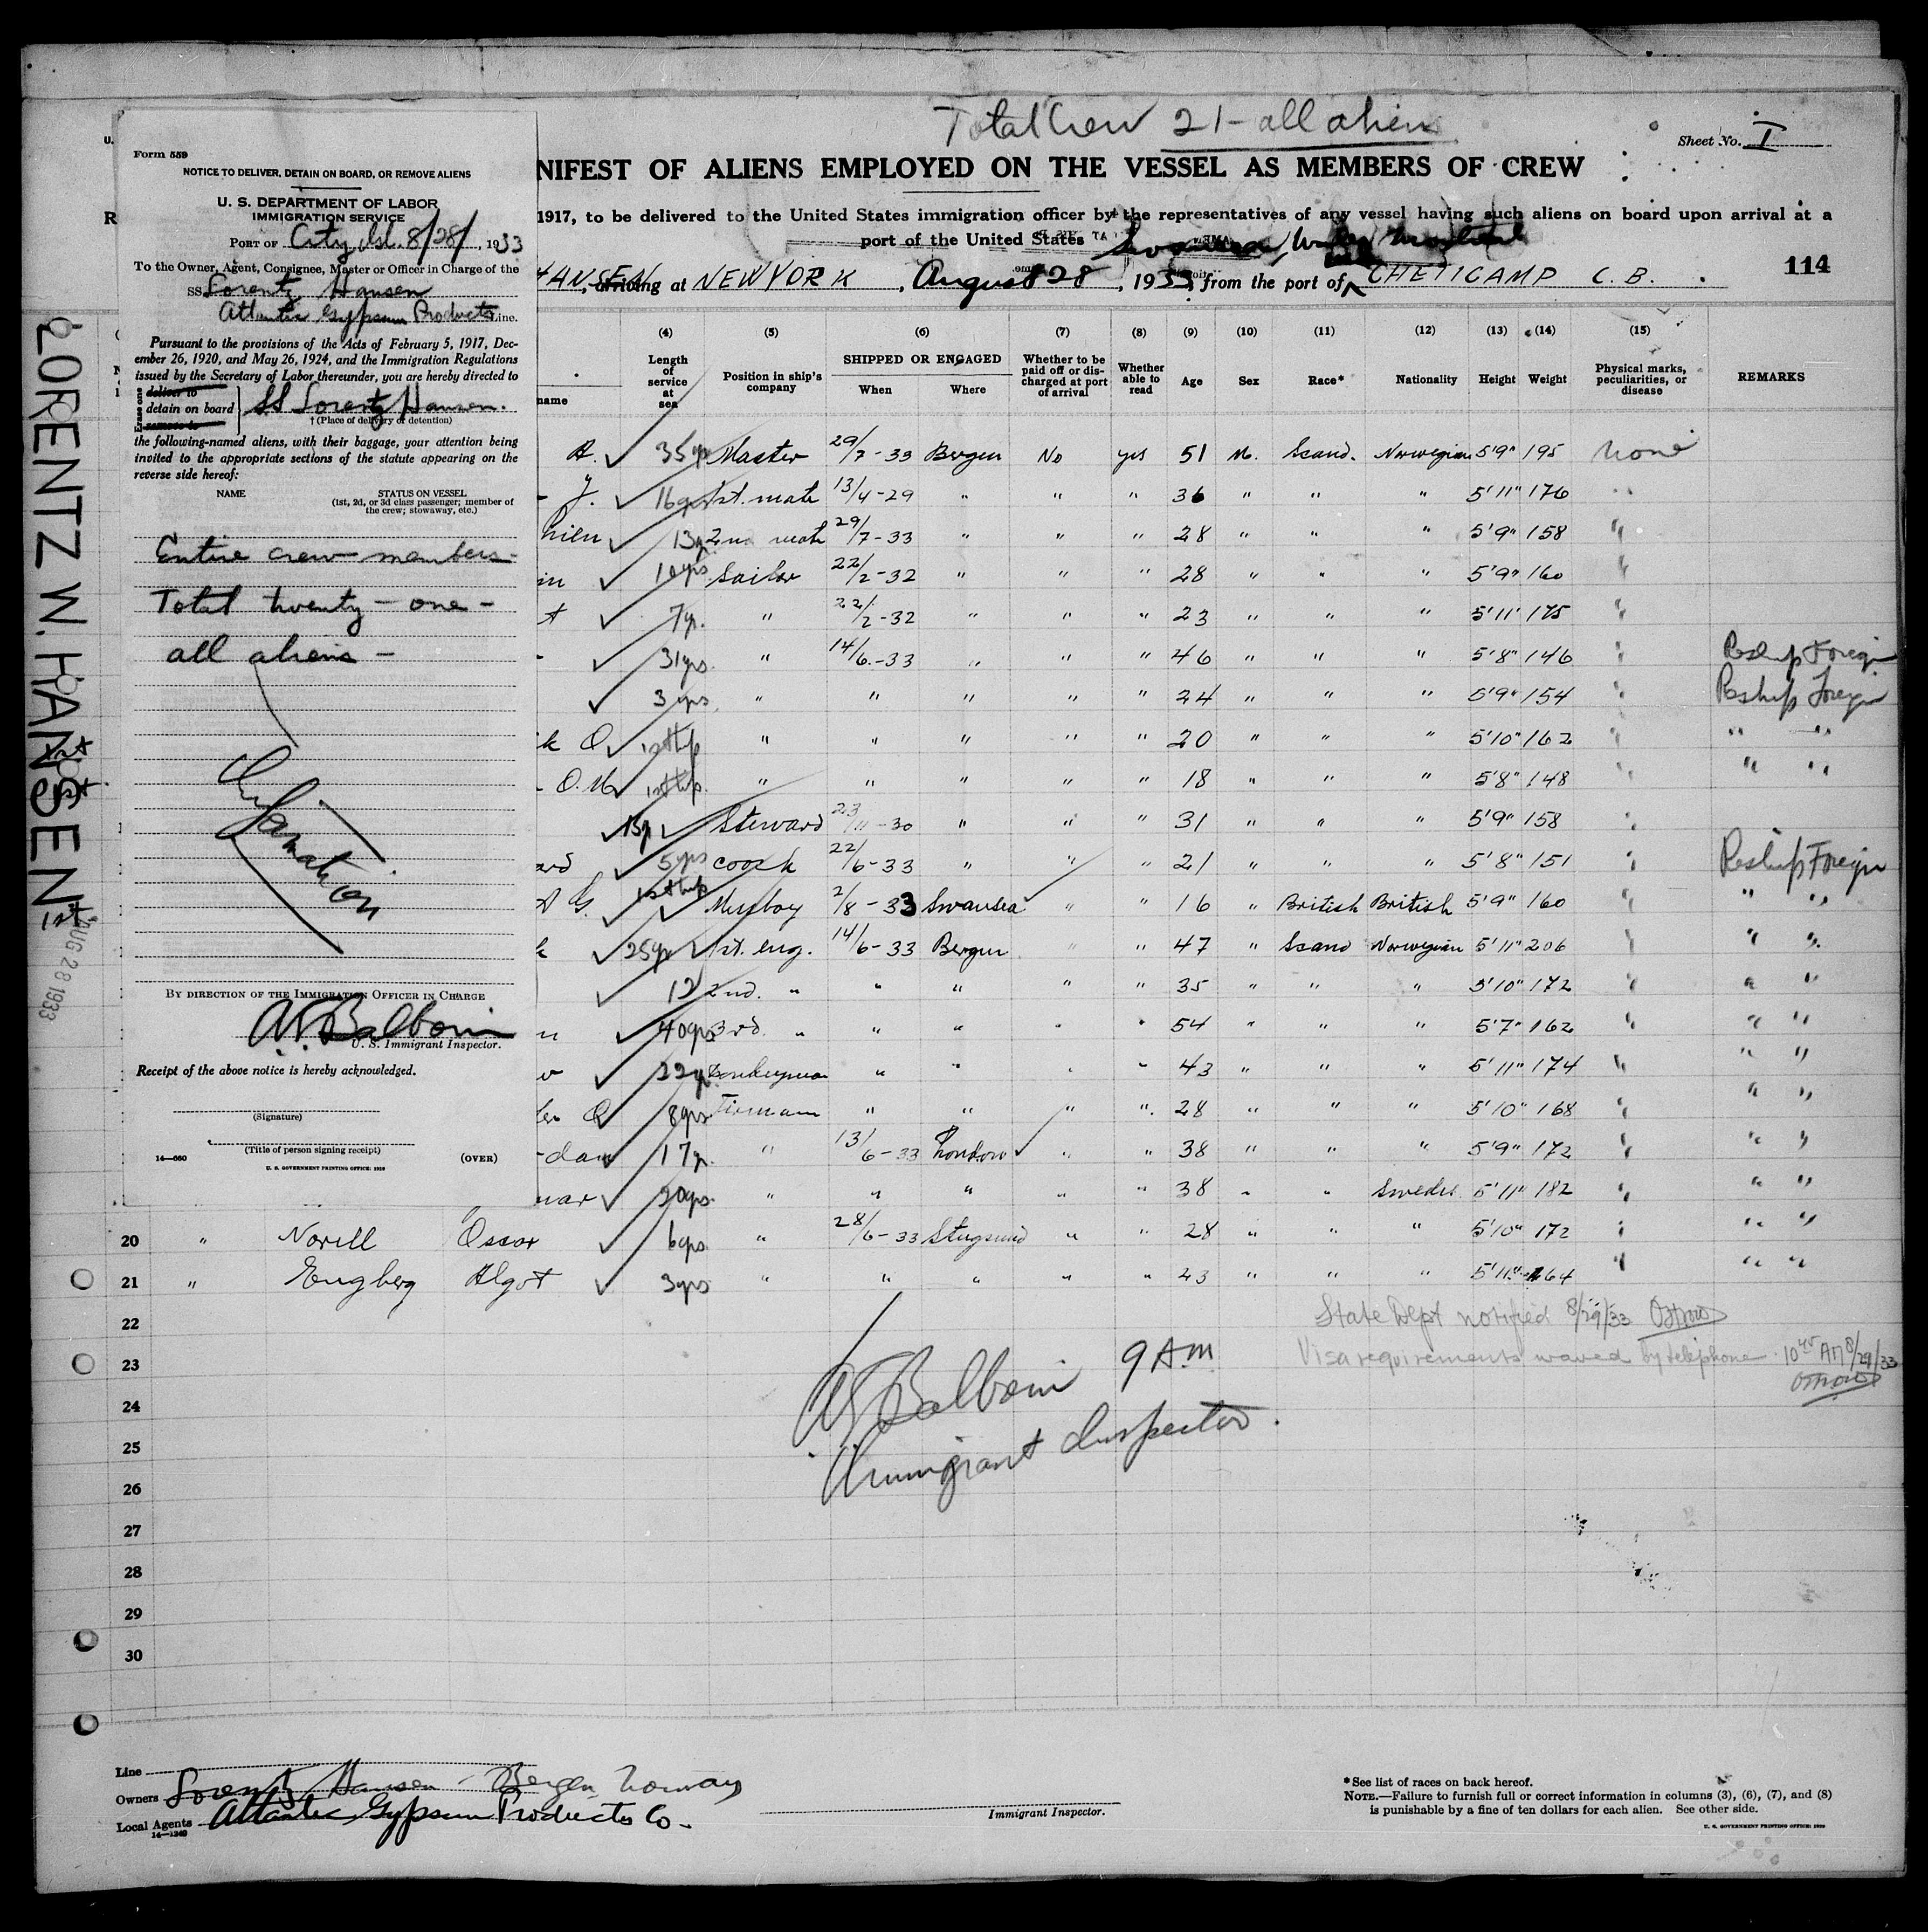 Total Crew 21 - all aliens
Sheet No. I
NIFEST OF ALIENS EMPLOYED ON THE VESSEL AS MEMBERS OF CREW
1917, to be delivered to the United States immigration officer by the representatives of any vessel having such aliens on board upon arrival at a
port of the United States
114
HANSEN, arriving at NEW YORK, August 28, 1933, from the port of CHETICAMP C. B.
Form 559
NOTICE TO DELIVER, DETAIN ON BOARD, OR REMOVE ALIENS
U. S. DEPARTMENT OF LABOR
IMMIGRATION SERVICE
PORT OF City Isl. 8/28/, 1933
To the Owner, Agent, Consignee, Master or Officer in Charge of the
SS Lorentz Hansen
Atlantic Gypsum Products Line.
Pursuant to the provisions of the Acts of February 5, 1917, Dec-
ember 26, 1920, and May 26, 1924, and the Immigration Regulations
issued by the Secretary of Labor thereunder, you are hereby directed to
Erase one
deliver to
detain on board
remove to
SS Lorentz Hansen.
† (Place of delivery or detention)
the following-named aliens, with their baggage, your attention being
invited to the appropriate sections of the statute appearing on the
reverse side hereof:
NAME STATUS ON VESSEL
(1st, 2d, or 3d class passenger; member of
the crew; stowaway, etc.)
Entire crew members -
Total twenty - one -
all aliens -
BY DIRECTION OF THE IMMIGRATION OFFICER IN CHARGE
U. S. Immigrant Inspector.
Receipt of the above notice is hereby acknowledged.
(Signature)
(Title of person signing receipt)
14—560 U. S. GOVERNMENT PRINTING OFFICE: 1929 (OVER)
LORENTZ W. HANSEN
AUG 28 1933
(4) (5) (6) (7) (8) (9) (10) (11) (12) (13) (14) (15)
Length of service at sea
Position in ship's company
SHIPPED OR ENGAGED
When Where
Whether to be paid off or discharged at port of arrival
Whether able to read
Age Sex Race* Nationality Height Weight
Physical marks, peculiarities, or disease
REMARKS
name
A. 35 yrs Master 29/7-33 Bergen No yes 51 M. Scand. Norwegian 5'9" 195 None
J. 16 yrs 1st. mate 13/4-29 " " " 36 " " " 5'11" 176 "
13 2nd mate 29/7-33 " " " 28 " " " 5'9" 158 "
10 yrs Sailor 22/2-32 " " " 28 " " " 5'9" 160 "
7 y. " 22/2-32 " " " 23 " " " 5'11" 175 "
31 yrs. " 14/6-33 " " " 46 " " " 5'8" 146 " Reship Foreign
3 yrs. " " " " " 24 " " " 5'9" 154 " Reship Foreign
k O. 1st trip " " " " " 20 " " " 5'10" 162 " " "
O.M. 1st trip. " " " " " 18 " " " 5'8" 148 " " "
Steward 23/11-30 " " " 31 " " " 5'9" 158 "
5 yrs coock 22/6-33 " " " 21 " " " 5'8" 151 " Reship Foreign
G. 1st trip Messboy 2/8-33 Swansea " " 16 " British British 5'9" 160 " " "
25 yr 1st. eng. 14/6-33 Bergen " " 47 " Scand Norwegian 5'11" 206 " " "
12 2nd. " " " " " 35 " " " 5'10" 172 " " "
40 yrs 3rd. " " " " " 54 " " " 5'7" 162 " " "
22 y. Donkeyman " " " " 43 " " " 5'11" 174 " " "
O 8 yrs. Fireman " " " " 28 " " " 5'10" 168 " " "
dan 17 y. " 13/6-33 London " " 38 " " " 5'9" 172 " " "
nar 20 yrs. " " " " " 38 " " Swedes. 5'11" 182 " " "
20 " Norell Oscar 6 yrs. " 28/6-33 Stugsund " " 28 " " " 5'10" 172 " " "
21 " Engberg Algot 3 yrs " " " " " 23 " " " 5'11" 164 " " "
22
State Dept notified 8/29/33
23
Visa requirements waved by telephone 10 45 AM 8/29/33
9 AM
24
Immigrant Inspector.
25
26
27
28
29
30
Line
Owners Lorentz Hansen - Bergen, Norway
Local Agents Atlantic Gypsum Products Co.
14—1240
Immigrant Inspector.
*See list of races on back hereof.
NOTE.—Failure to furnish full or correct information in columns (3), (6), (7), and (8)
is punishable by a fine of ten dollars for each alien. See other side.
U. S. GOVERNMENT PRINTING OFFICE: 1929